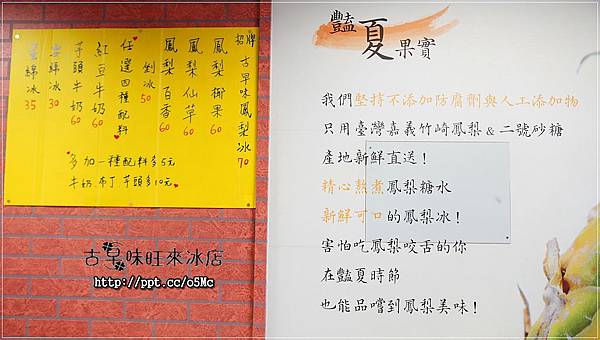 招牌 古早味鳳梨冰 70
鳳梨椰果 60
鳳梨仙草 60
鳳梨百香 60
剉冰 50
任選四種配料
紅豆牛奶 60
芋頭牛奶 60
綿綿冰 30
綿冰 35
多加一種配料多5元
牛奶、布丁、芋頭多10元
古早味旺來冰店
http://ppt.cc/o5Mc
豔夏果實
我們堅持不添加防腐劑與人工添加物
只用臺灣嘉義竹崎鳳梨&二號砂糖
產地新鮮直送!
精心熬煮鳳梨糖水
新鮮可口的鳳梨冰!
害怕吃鳳梨咬舌的你
在豔夏時節
也能品嚐到鳳梨美味!